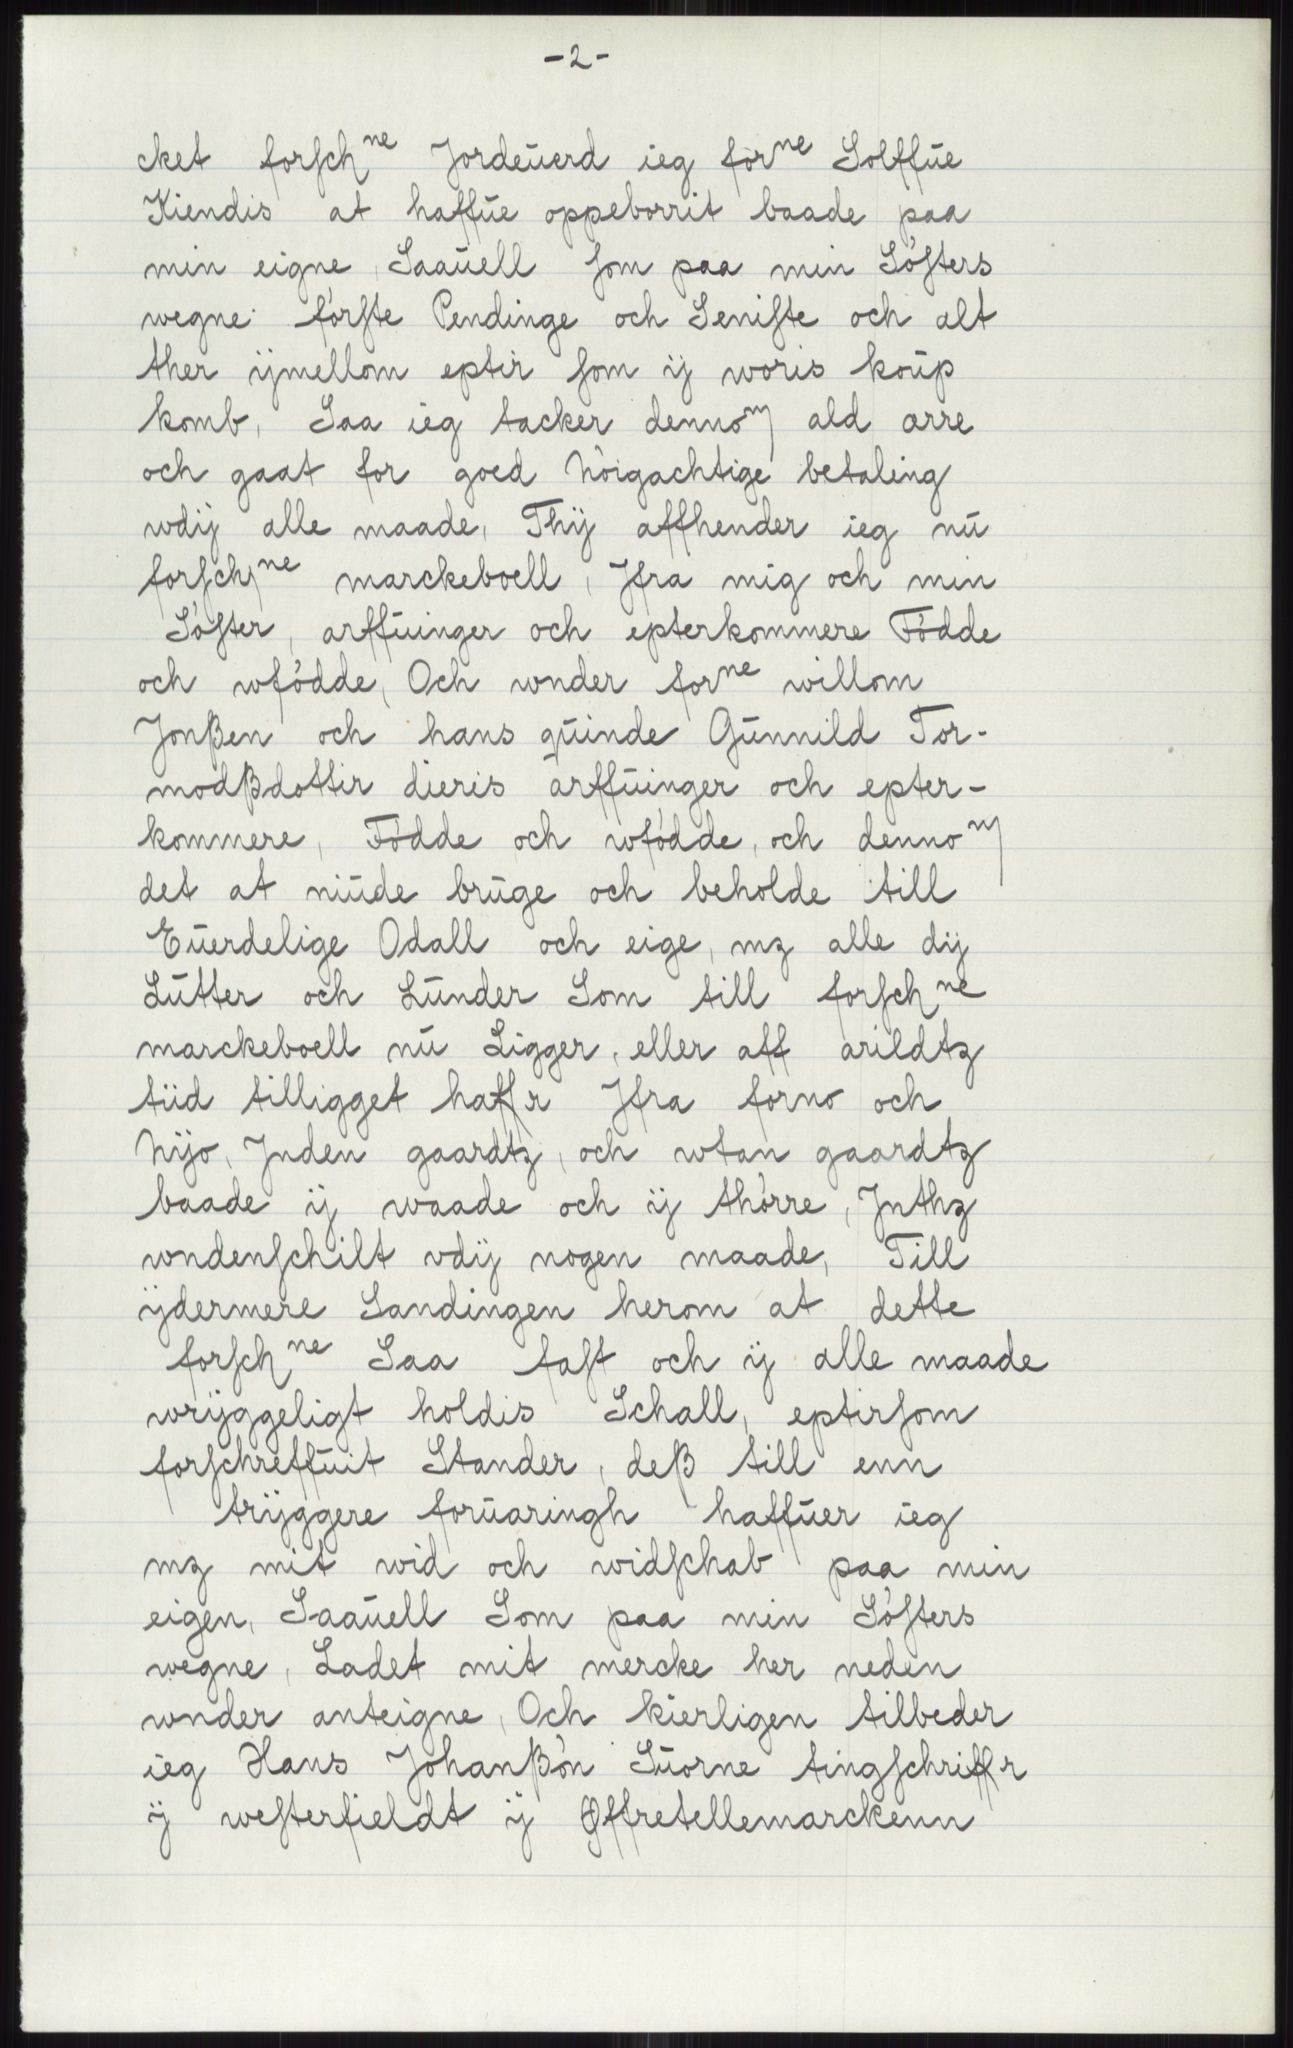 -2-
cket forsch^ne Jordeŭerd ieg for^ne Solffŭe
Kiendis at haffŭe oppeborrit baade paa
min eigne, Saaŭell som paa min Sósters
wegne fórste Pendinge och Seniste och alt
ther ÿmellom eptir som ÿ woris koŭp
komb, Saa ieg tacker denno^m ald ærre
och gaat for goed Nóigachtige betaling
wdÿ alle maade, Thÿ affhender ieg nŭ
forsch^ne marckeboell, Jfra mig och min
Sóster, arffŭinger och epterkommere Fódde
och wfódde, Och wnder for^ne willom
Jonßen och hans qŭinde Gŭnnild Tor-
modßdottir dieris arffŭinger och epter-
kommere, Fódde och wfódde, och denno^m
det at niŭde brŭge och beholde till
Eŭerdelige Odall och eige, mz alle dÿ
Lŭtter och Lŭnder Som till forsch^ne
marckeboell nŭ Ligger, eller aff arildtz
tiid tilligget haffr Jfra forno och
Nÿo, Jnden gaardtz, och wtan gaardtz
baade ÿ waade och ÿ thórre, Jnthz
wndenschilt vdÿ nogen maade, Till
ÿdermere Sandingen herom at dette
forsch^ne Saa fast och ÿ alle maade
wrÿggeligt holdis Schall, eptirsom
forschreffŭit Stander, deß till enn
trÿggere forŭaringh haffŭer ieg
mz mit wid och widschab paa min
eigen, Saaŭell Som paa min Sósters
wegne, Ladet mit mercke her neden
wnder anteigne, Och kierligen tilbeder
ieg Hans Johanßón Sŭorne tingschriffr
ÿ westerfieldt ÿ Øffretellemarckenn